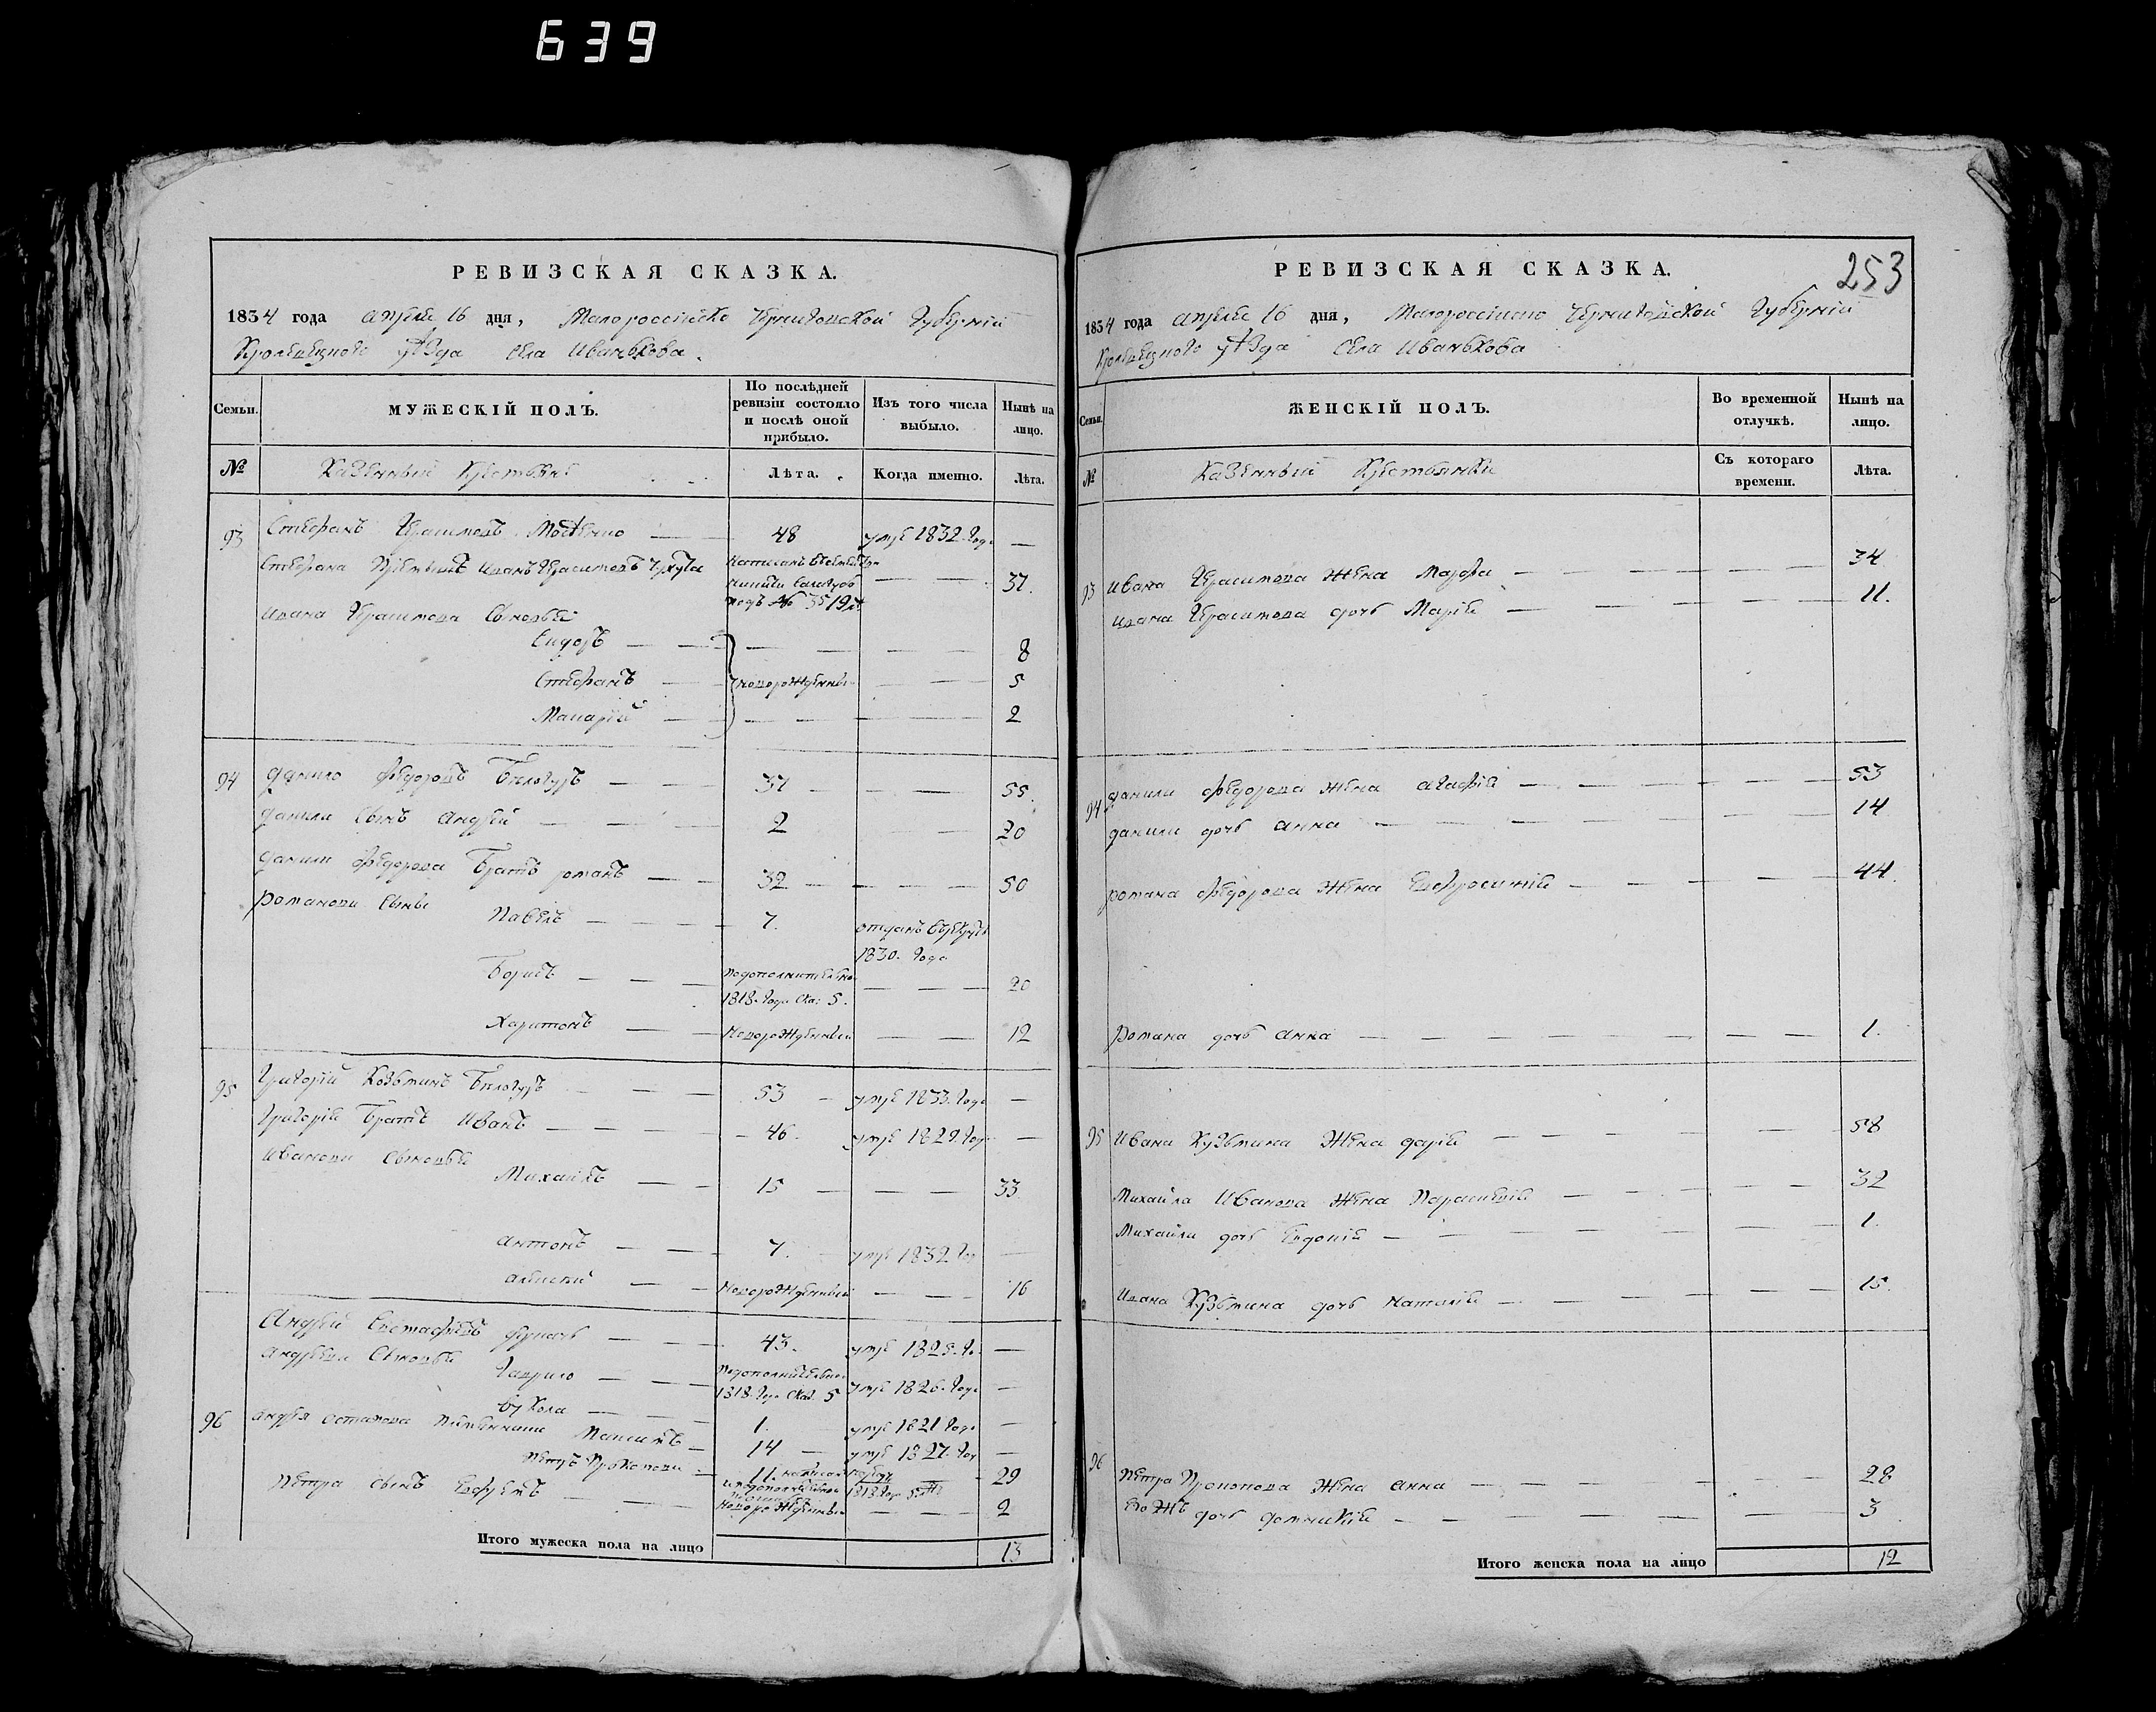 639
РЕВИЗСКАЯ СКАЗКА.
1834 года апреля 16 дня, Малороссийско Черниговской Губернии
Кролевецкого уѣзда села Иванькова.
Семьи.
МУЖЕСКІЙ ПОЛЪ.
По послѣдней ревизіи состояло и послѣ оной прибыло.
Изъ того числа выбыло.
Нынѣ на лицо.
№
Казенныи Крестьяне
Лѣта.
Когда именно.
Лѣта.
93 Стефанъ Герасимовъ 48 умре 1832 Год. —
Стефана Иванъ Герасимовъ 37.
подъ № 35 19 л.
Ивана Герасимова сыновья
Сидоръ — 8
Стефанъ — новорожденны 5
Макарий — 2
94 Данило Федоровъ Белогуръ — 37 — 55.
Данили сынъ Андрей — 2 — 20
Данили Федорова братъ романъ — 32 — 50
Романови сыны
Павелъ — 7. отданъ в рекруты
1830. Года
Борисъ — по дополнительной
1818. Года ска: 5. — 20
Харитонъ — Новорожденный — 12
95 Григорий Козьминъ Белогуръ — 53 — умре 1833. Года —
Григория братъ Иванъ — 46. умре 1829. Года —
Иванови сыновья
Михайлъ — 15 — 33.
антонъ — 7. — умре 1832 Год —
алексий — Новорожденный — 16
Андрей Евстафиевъ — 43. умре 182 Го. —
андреевы сыновья
Гаврило — по дополнительной
1818. Года ска. 5 умре 1826. Года —
вукола — 1. умре 1821 Года —
96 андрея остапова племянники Максимъ — 14 — умре 1827. Год —
Петръ Прокопови — 11. написан 29
1818 Года
Петра сынъ Ефремъ — Новорожденны — 2
Итого мужеска пола на лицо 13
РЕВИЗСКАЯ СКАЗКА.
253
1834 года апреля 16 дня, Малороссийско Черниговской Губернии
Кролевецкого уѣзда села Иванькова
Семьи.
ЖЕНСКІЙ ПОЛЪ.
Во временной отлучкѣ.
Нынѣ на лицо.
№
Казенныи Крестьянки
Съ котораго времени.
Лѣта.
93 Ивана Герасимова жена Марфа — 34
Ивана Герасимова дочь Мария — 11.
94 Данили Федорова жена агафия — 53
Данили дочь анна — 14
Романа Федорова жена Евфросиния — 44.
Романа дочь анна — 1.
95 Ивана Кузьмина жена дария — 58
Михайла Иванова жена Парасковия — 32
Михайли дочь Евдокия — 1.
Ивана Кузьмина дочь Наталия — 15.
96 Петра Прокопова жена анна — 28
его жъ дочь домникия — 3
Итого женска пола на лицо 12